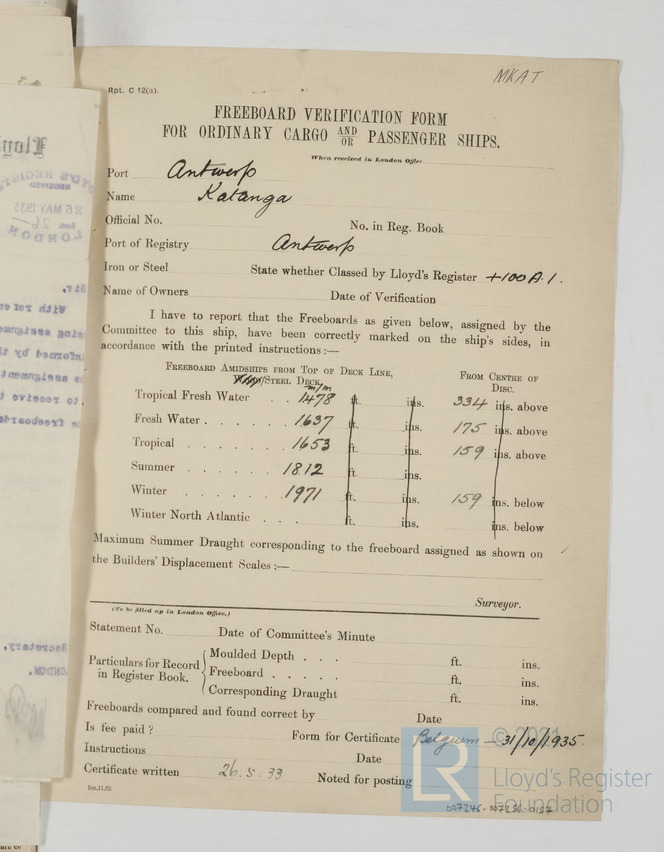 MKAT
Rpt. C 12(a).
FREEBOARD VERIFICATION FORM
FOR ORDINARY CARGO AND OR PASSENGER SHIPS.
When received in London Office
Port Antwerp
Name Katanga
Official No. No. in Reg. Book
Port of Registry Antwerp
Iron or Steel State whether Classed by Lloyd's Register +100 A.1.
Name of Owners Date of Verification
I have to report that the Freeboards as given below, assigned by the
Committee to this ship, have been correctly marked on the ship's sides, in
accordance with the printed instructions:—
FREEBOARD AMIDSHIPS FROM TOP OF DECK LINE, FROM CENTRE OF
/STEEL DECK. DISC.
m/m
Tropical Fresh Water . . 1478 ft. ins. 334 ins. above
Fresh Water . . . . . . 1637 ft. ins. 175 ins. above
Tropical . . . . . . 1653 ft. ins. 159 ins. above
Summer . . . . . . 1812 ft. ins.
Winter . . . . . . 1971 ft. ins. 159 ins. below
Winter North Atlantic . . . ft. ins. ins. below
Maximum Summer Draught corresponding to the freeboard assigned as shown on
the Builders' Displacement Scales:—
Surveyor.
(To be filled up in London Office.)
Statement No. Date of Committee's Minute
Particulars for Record in Register Book.
Moulded Depth . . . ft. ins.
Freeboard . . . . . ft. ins.
Corresponding Draught ft. ins.
Freeboards compared and found correct by Date
Is fee paid? Form for Certificate Belgium — 31/10/1935.
Instructions Date
Certificate written 26.5.33 Noted for posting
© 2021
LR
Lloyd's Register
Foundation
007246-007256-0157
LLOYD'S REGISTER
RECEIVED
26 MAY 1933
LONDON
Sir,
With refer
being assignme
informed by th
assignment
to receive t
freeboards
Secretary,
LONDON.